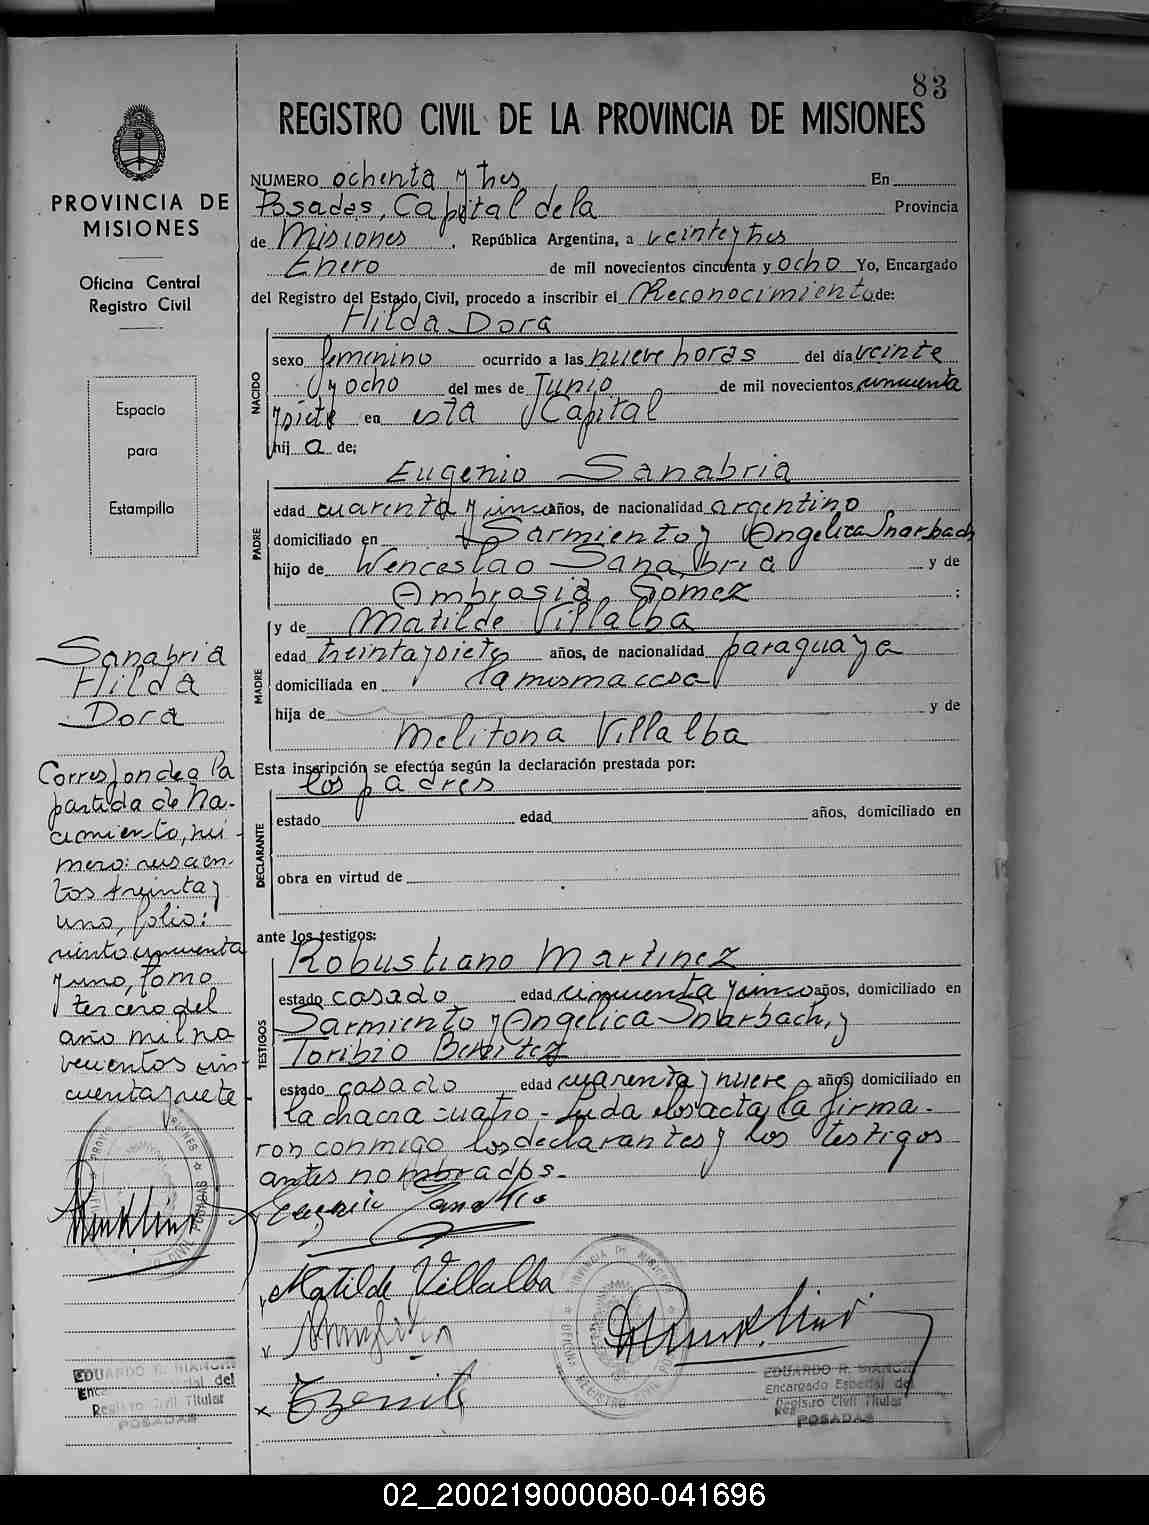 83
REGISTRO CIVIL DE LA PROVINCIA DE MISIONES
PROVINCIA DE
MISIONES
Oficina Central
Registro Civil
Espacio
para
Estampilla
Sanabria
Hilda
Dora
Corresponde a la
partida de Na-
cimiento, nú-
mero:
tos treinta y
uno, folio:
ciento cincuenta
y uno, tomo
tercero del
año mil no
vecientos cin
cuenta y siete
EDUARDO R. BIANCHI
Encargado Especial del
Registro Civil Titular
POSADAS
NUMERO ochenta y tres En
Posadas, Capital de la Provincia
de Misiones. República Argentina, a veinte y tres
Enero de mil novecientos cincuenta y ocho Yo, Encargado
del Registro del Estado Civil, procedo a inscribir el Reconocimiento de:
Hilda Dora
NACIDO
sexo femenino ocurrido a las nueve horas del día veinte
y ocho del mes de Junio de mil novecientos cincuenta
y siete en esta Capital
hij a de;
Eugenio Sanabria
PADRE
edad cuarenta y cinco años, de nacionalidad argentino
domiciliado en Sarmiento y Angelica Snarbach
hijo de Wenceslao Sanabria y de
Ambrosia Gomez ;
y de Matilde Villalba
MADRE
edad treinta y siete años, de nacionalidad paraguaya
domiciliada en la misma casa
hija de y de
Melitona Villalba
Esta inscripción se efectúa según la declaración prestada por:
los padres
DECLARANTE
estado edad años, domiciliado en
obra en virtud de
ante los testigos:
Robustiano Martinez
TESTIGOS
estado casado edad cincuenta y cinco años, domiciliado en
Sarmiento y Angelica Snarbach, y
Toribio Benitez
estado casado edad cuarenta y nueve años, domiciliado en
la chacra cuatro - Leida el acta, la firma-
ron conmigo los declarantes y los testigos
antes nombrados.-
Eugenio Sanabria
Matilde Villalba
EDUARDO R. BIANCHI
Encargado Especial del
Registro Civil Titular
POSADAS
02_200219000080-041696